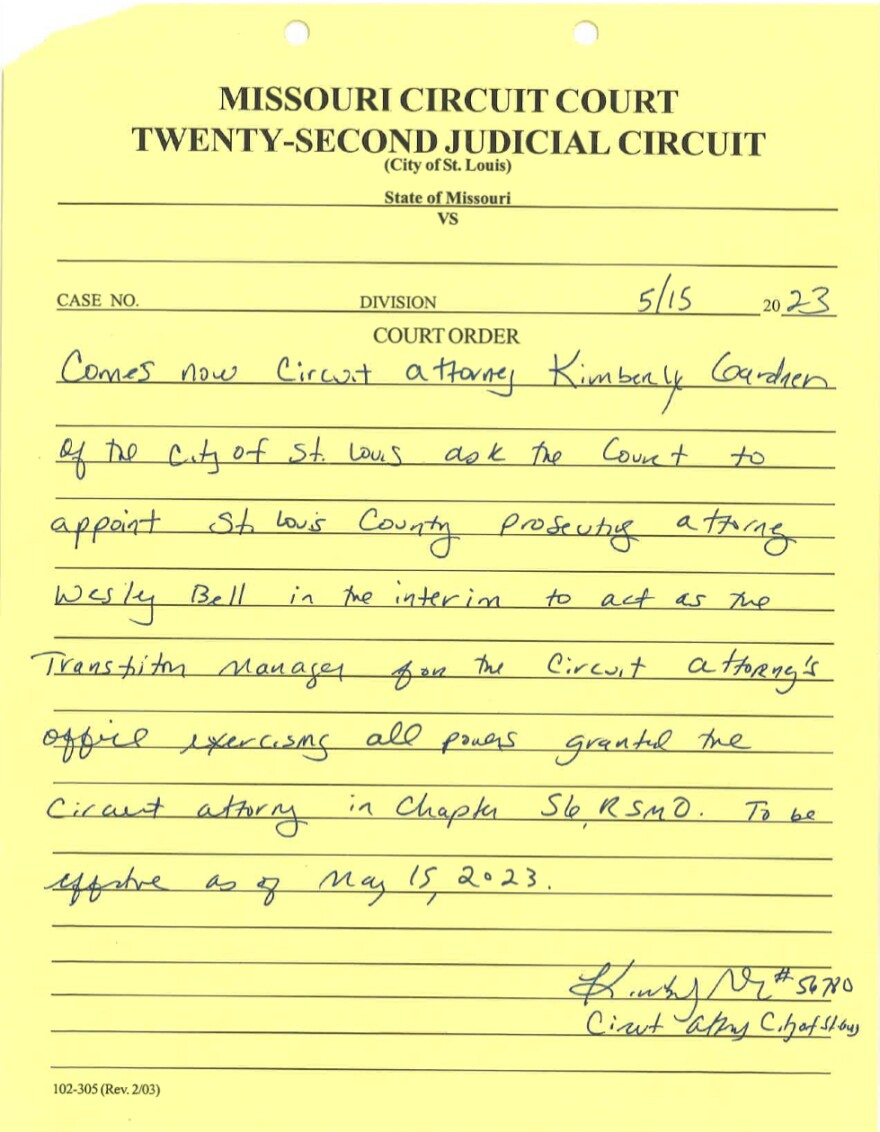 MISSOURI CIRCUIT COURT
TWENTY-SECOND JUDICIAL CIRCUIT
(City of St. Louis)
State of Missouri
VS
CASE NO. DIVISION 5/15 2023
COURT ORDER
Comes now Circuit attorney Kimberly Gardner
of the City of St. Louis ask the Court to
appoint St. Louis County Prosecuting attorney
Wesley Bell in the interim to act as the
Transition Manager for the Circuit attorney's
office exercising all powers granted the
Circuit attorney in Chapter 56, RSMO. To be
effective as of May 15, 2023.
#56780
Circuit attorney City of St. Louis
102-305 (Rev. 2/03)